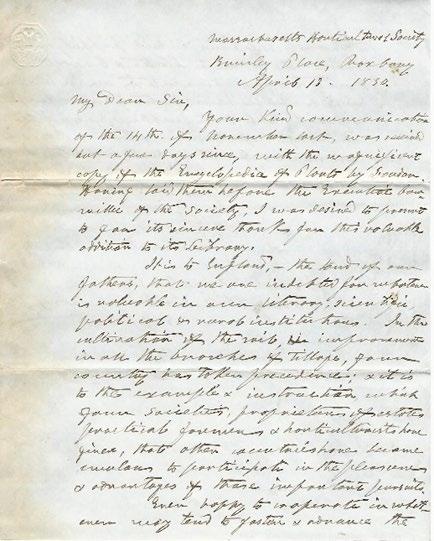 Massachusetts Horticultural Society
Brinley Place, Roxbury
April 13. 1830.
My Dear Sir,
Your kind communication
of the 14th. of November last, was received
but a few days since, with the magnificent
copy of the Encyclopedia of Plants by Loudon.
Having laid them before the Executive Com-
mittee of the Society, I was desired to present
to you its sincere thanks for this valuable
addition to its Library.
It is to England, – the land of our
fathers, that we are indebted for whatever
is valuable in our literary, scientific
political & moral institutions. In the
cultivation of the soil, & improvement
in all the branches of tillage, your
country has taken precedence; & it is
to the example & instruction which
your societies, proprietors of estates
practical farmers & horticulturists have
given, that other countries have become
zealous to participate in the pleasures
& advantages of those important pursuits.
Ever happy to cooperate in what-
ever may tend to foster & advance the